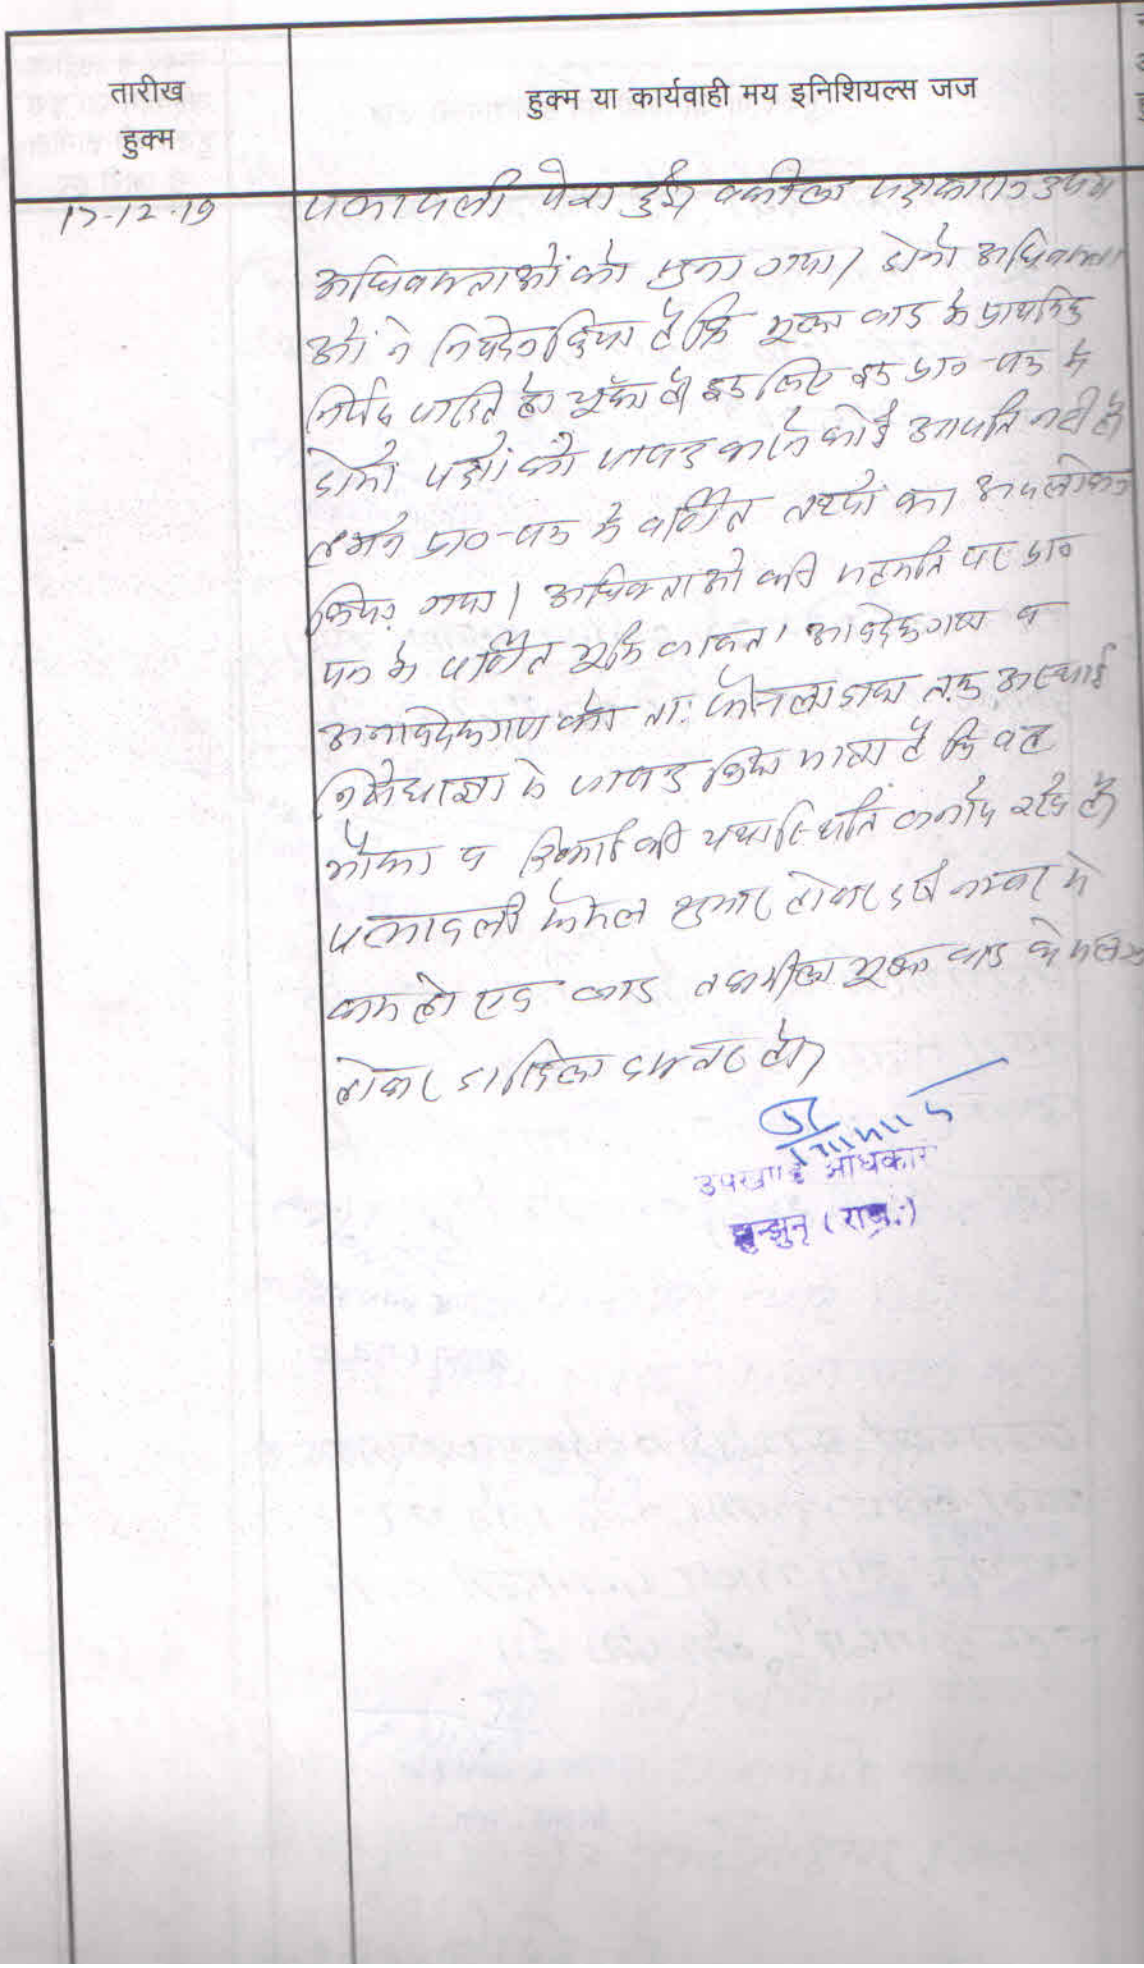 तारीख
हुक्म
हुक्म या कार्यवाही मय इनिशियल्स जज
17-12-19
पत्रावली पेश हुई। वकील पक्षकारान उपस्थ
अधिवक्ताओं को सुना गया। दोनो अधिवक्ता
ओं ने निवेदन किया है कि मूल वाद मे प्राथमिक
निर्णय पारित हो चूका है। इस लिए इस प्रा०-पत्र मे
दोनो पक्षों को पाबन्द करने कोई आपति नही है।
हमने प्रा०-पत्र मे वर्णित तथ्यों का अवलोकन
किया गया। अधिवक्ताओ की सहमति पर प्रा०
पत्र मे वर्णित भूमि बाबत आवेदकगण व
अनावेदकगण को ता. फैसला दावा तक अस्थाई
निषेधाज्ञा से पाबन्द किया जाता है कि वह
मौका व रिकार्ड की यथास्थिति बनाये रखे।
पत्रावली फैसल शुमार होकर दर्ज नम्बर से
कम हो एवं बाद तकमील मूल वाद के संलग्न
होकर दाखिल दफ्तर हो।
उपखण्ड अधिकारी
झुन्झुनू (राज.)